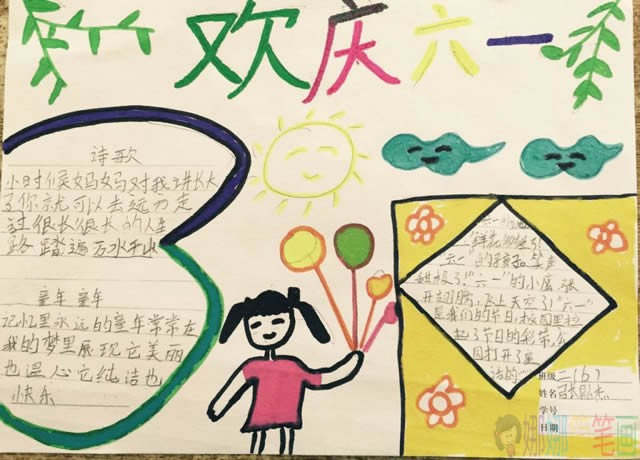 欢庆六一
诗歌
小时候妈妈对我讲长大
了你就可以去远方走
过很长很长的人生
路 踏遍万水千山
童年 童年
记忆里永远的童年常常在
我的梦里展现它美丽
也温心它纯洁也
快乐
六一
鲜花
六一"的孩子笑声
甜极了!"六一"的小鹰 张
开翅膀 天空了!"六一"
是我们的节日,校园里拉
起了节日的彩带
园打开了
诗的
班级 二(6)
姓名
学号
日期
娜娜 笔画